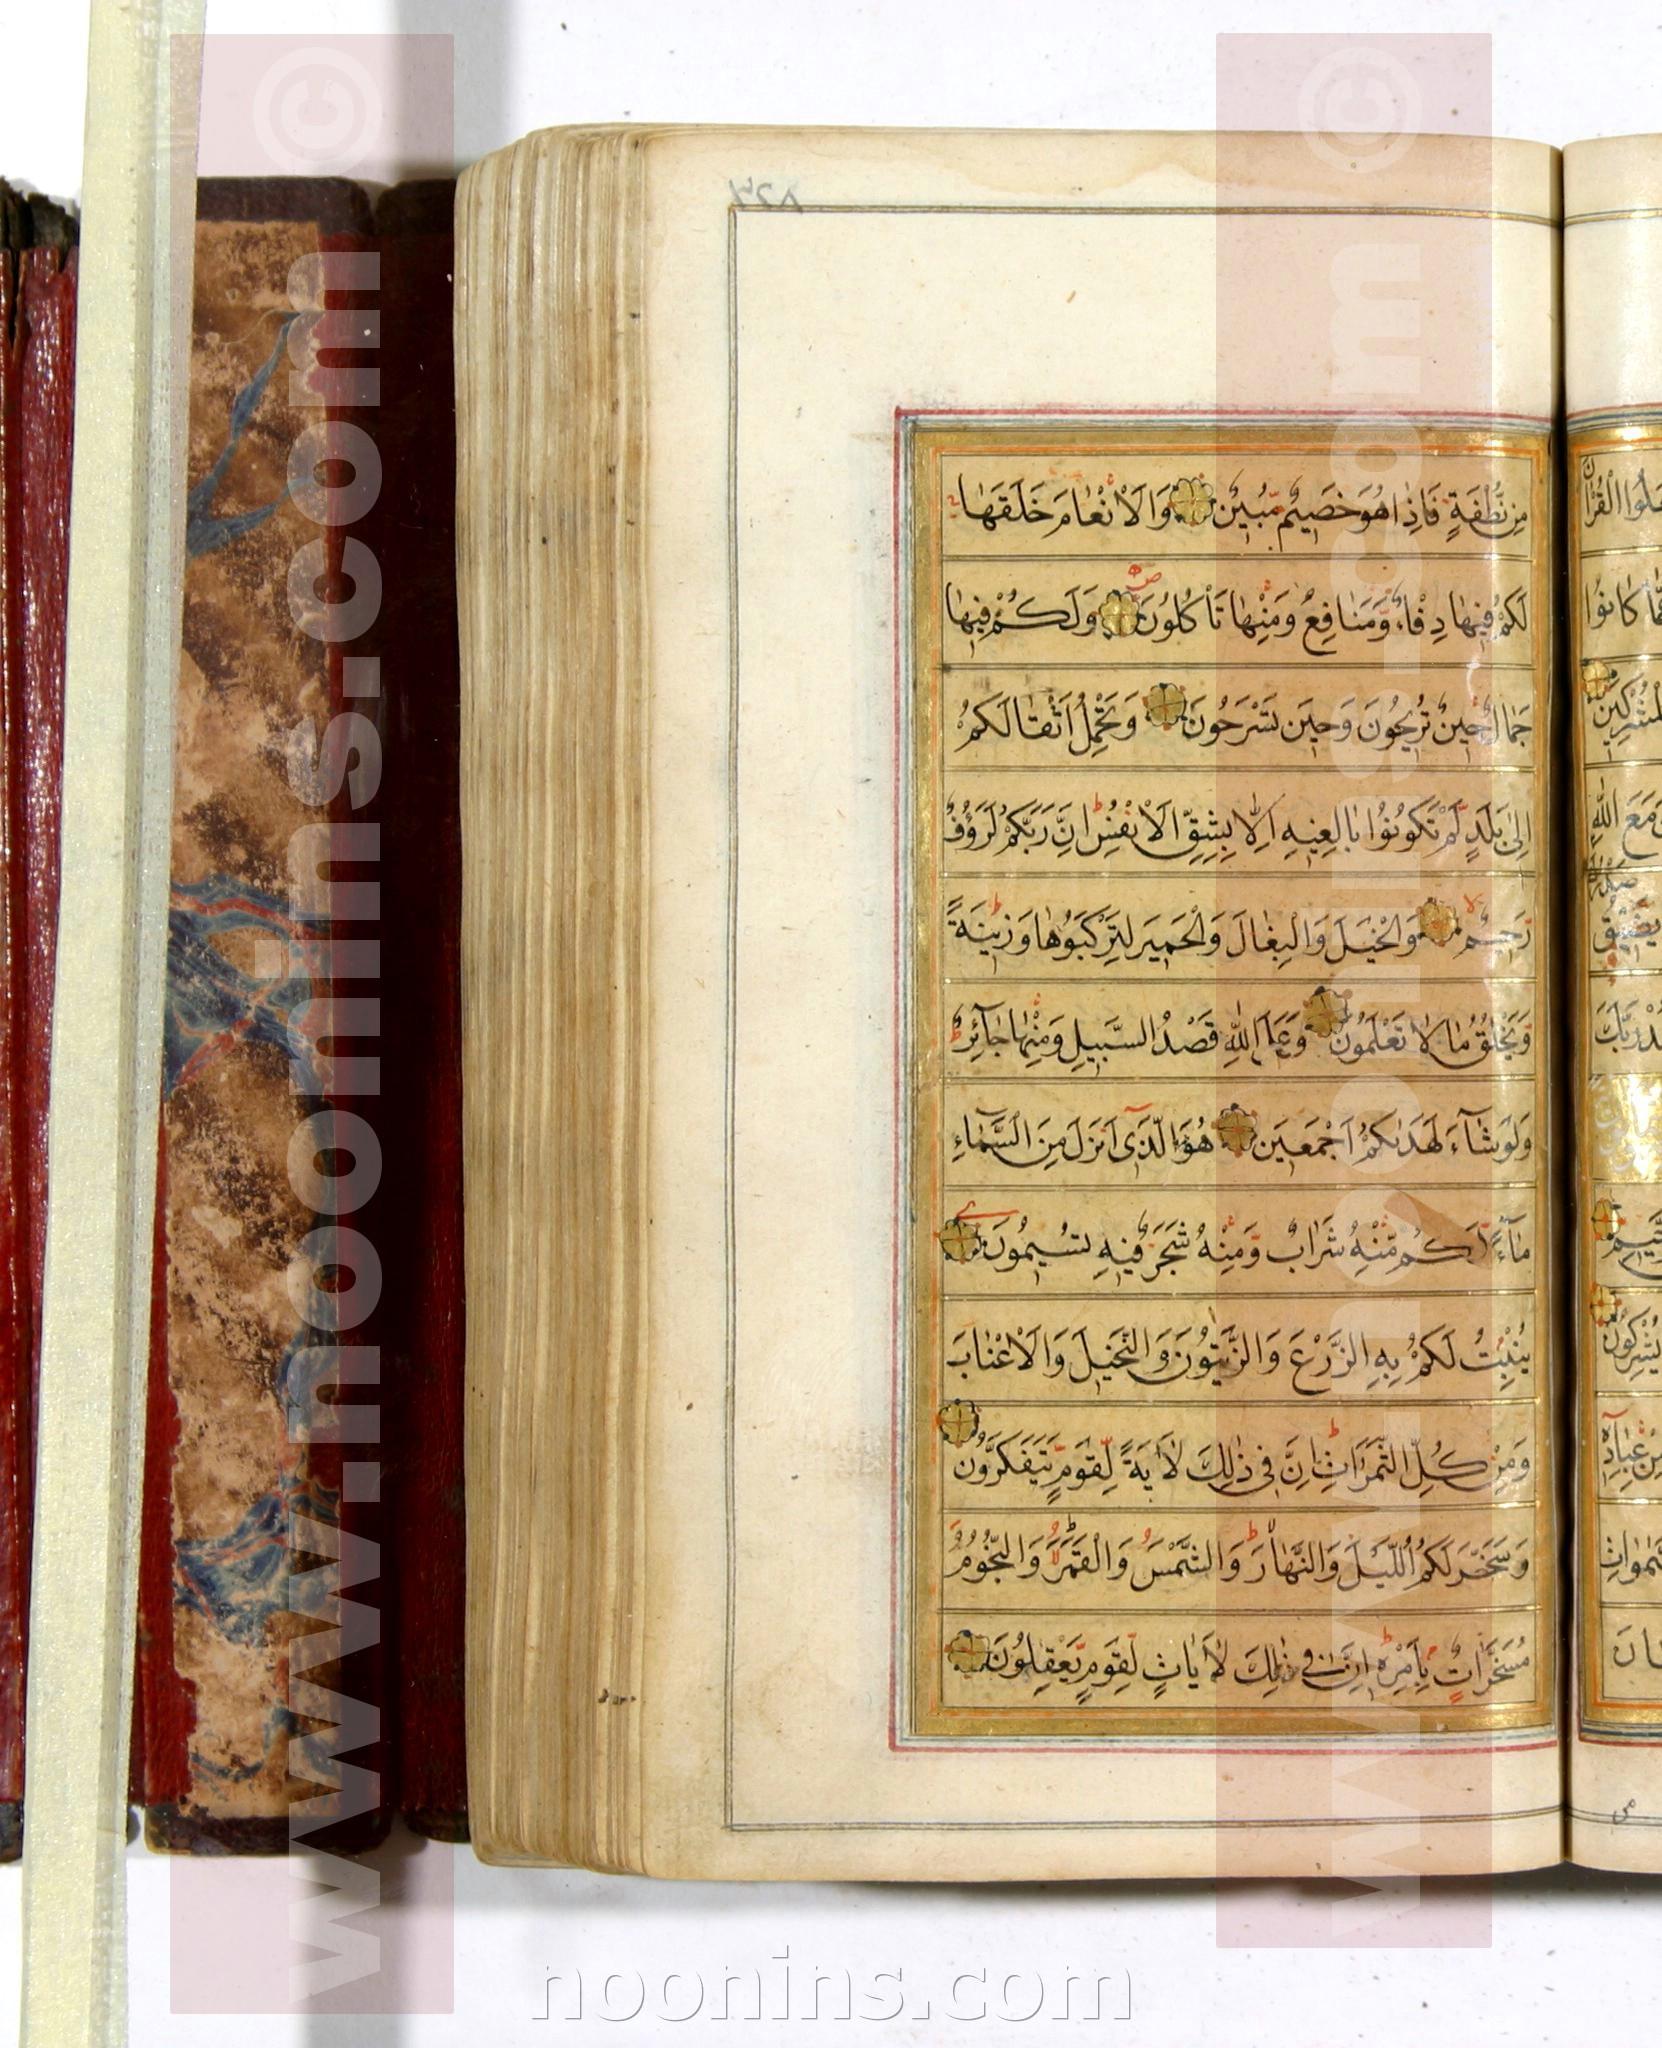 مِنْ نُطْفَةٍ فَاِذَا هُوَ خَصِيمٌ مُّبِينٌ وَالْاَنْعٰامَ خَلَقَهٰا
لَكُمْ فِيهٰا دِفْءٌ وَّمَنٰافِعُ وَمِنْهٰا تَأْكُلُونَ وَلَكُمْ فِيهٰا
جَمٰالٌ حِينَ تُرِيحُونَ وَحِينَ تَسْرَحُونَ وَتَحْمِلُ اَثْقٰالَكُمْ
اِلٰى بَلَدٍ لَّمْ تَكُونُوا بٰالِغِيهِ اِلّٰا بِشِقِّ الْاَنْفُسِ اِنَّ رَبَّكُمْ لَرَؤُفٌ
رَّحِيمٌ وَالْخَيْلَ وَالْبِغٰالَ وَالْحَمِيرَ لِتَرْكَبُوهٰا وَزِينَةً
وَّيَخْلُقُ مٰا لٰا تَعْلَمُونَ وَعَلَى اللّٰهِ قَصْدُ السَّبِيلِ وَمِنْهٰا جٰٓائِرٌ
وَّلَوْ شٰٓاءَ لَهَدٰيكُمْ اَجْمَعِينَ هُوَ الَّذِٓى اَنْزَلَ مِنَ السَّمٰٓاءِ
مٰٓاءً لَّكُمْ مِّنْهُ شَرٰابٌ وَّمِنْهُ شَجَرٌ فِيهِ تُسِيمُونَ
يُنْبِتُ لَكُمْ بِهِ الزَّرْعَ وَالزَّيْتُونَ وَالنَّخِيلَ وَالْاَعْنٰابَ
وَمِنْ كُلِّ الثَّمَرٰاتِ اِنَّ فِى ذٰلِكَ لَاٰيَةً لِّقَوْمٍ يَّتَفَكَّرُونَ
وَسَخَّرَ لَكُمُ اللَّيْلَ وَالنَّهٰارَ وَالشَّمْسَ وَالْقَمَرَ وَالنُّجُومُ
مُسَخَّرٰاتٌ بِاَمْرِهِ اِنَّ فِى ذٰلِكَ لَاٰيٰاتٍ لِّقَوْمٍ يَّعْقِلُونَ
www.noonins.com ©
www.noonins.com ©
noonins.com